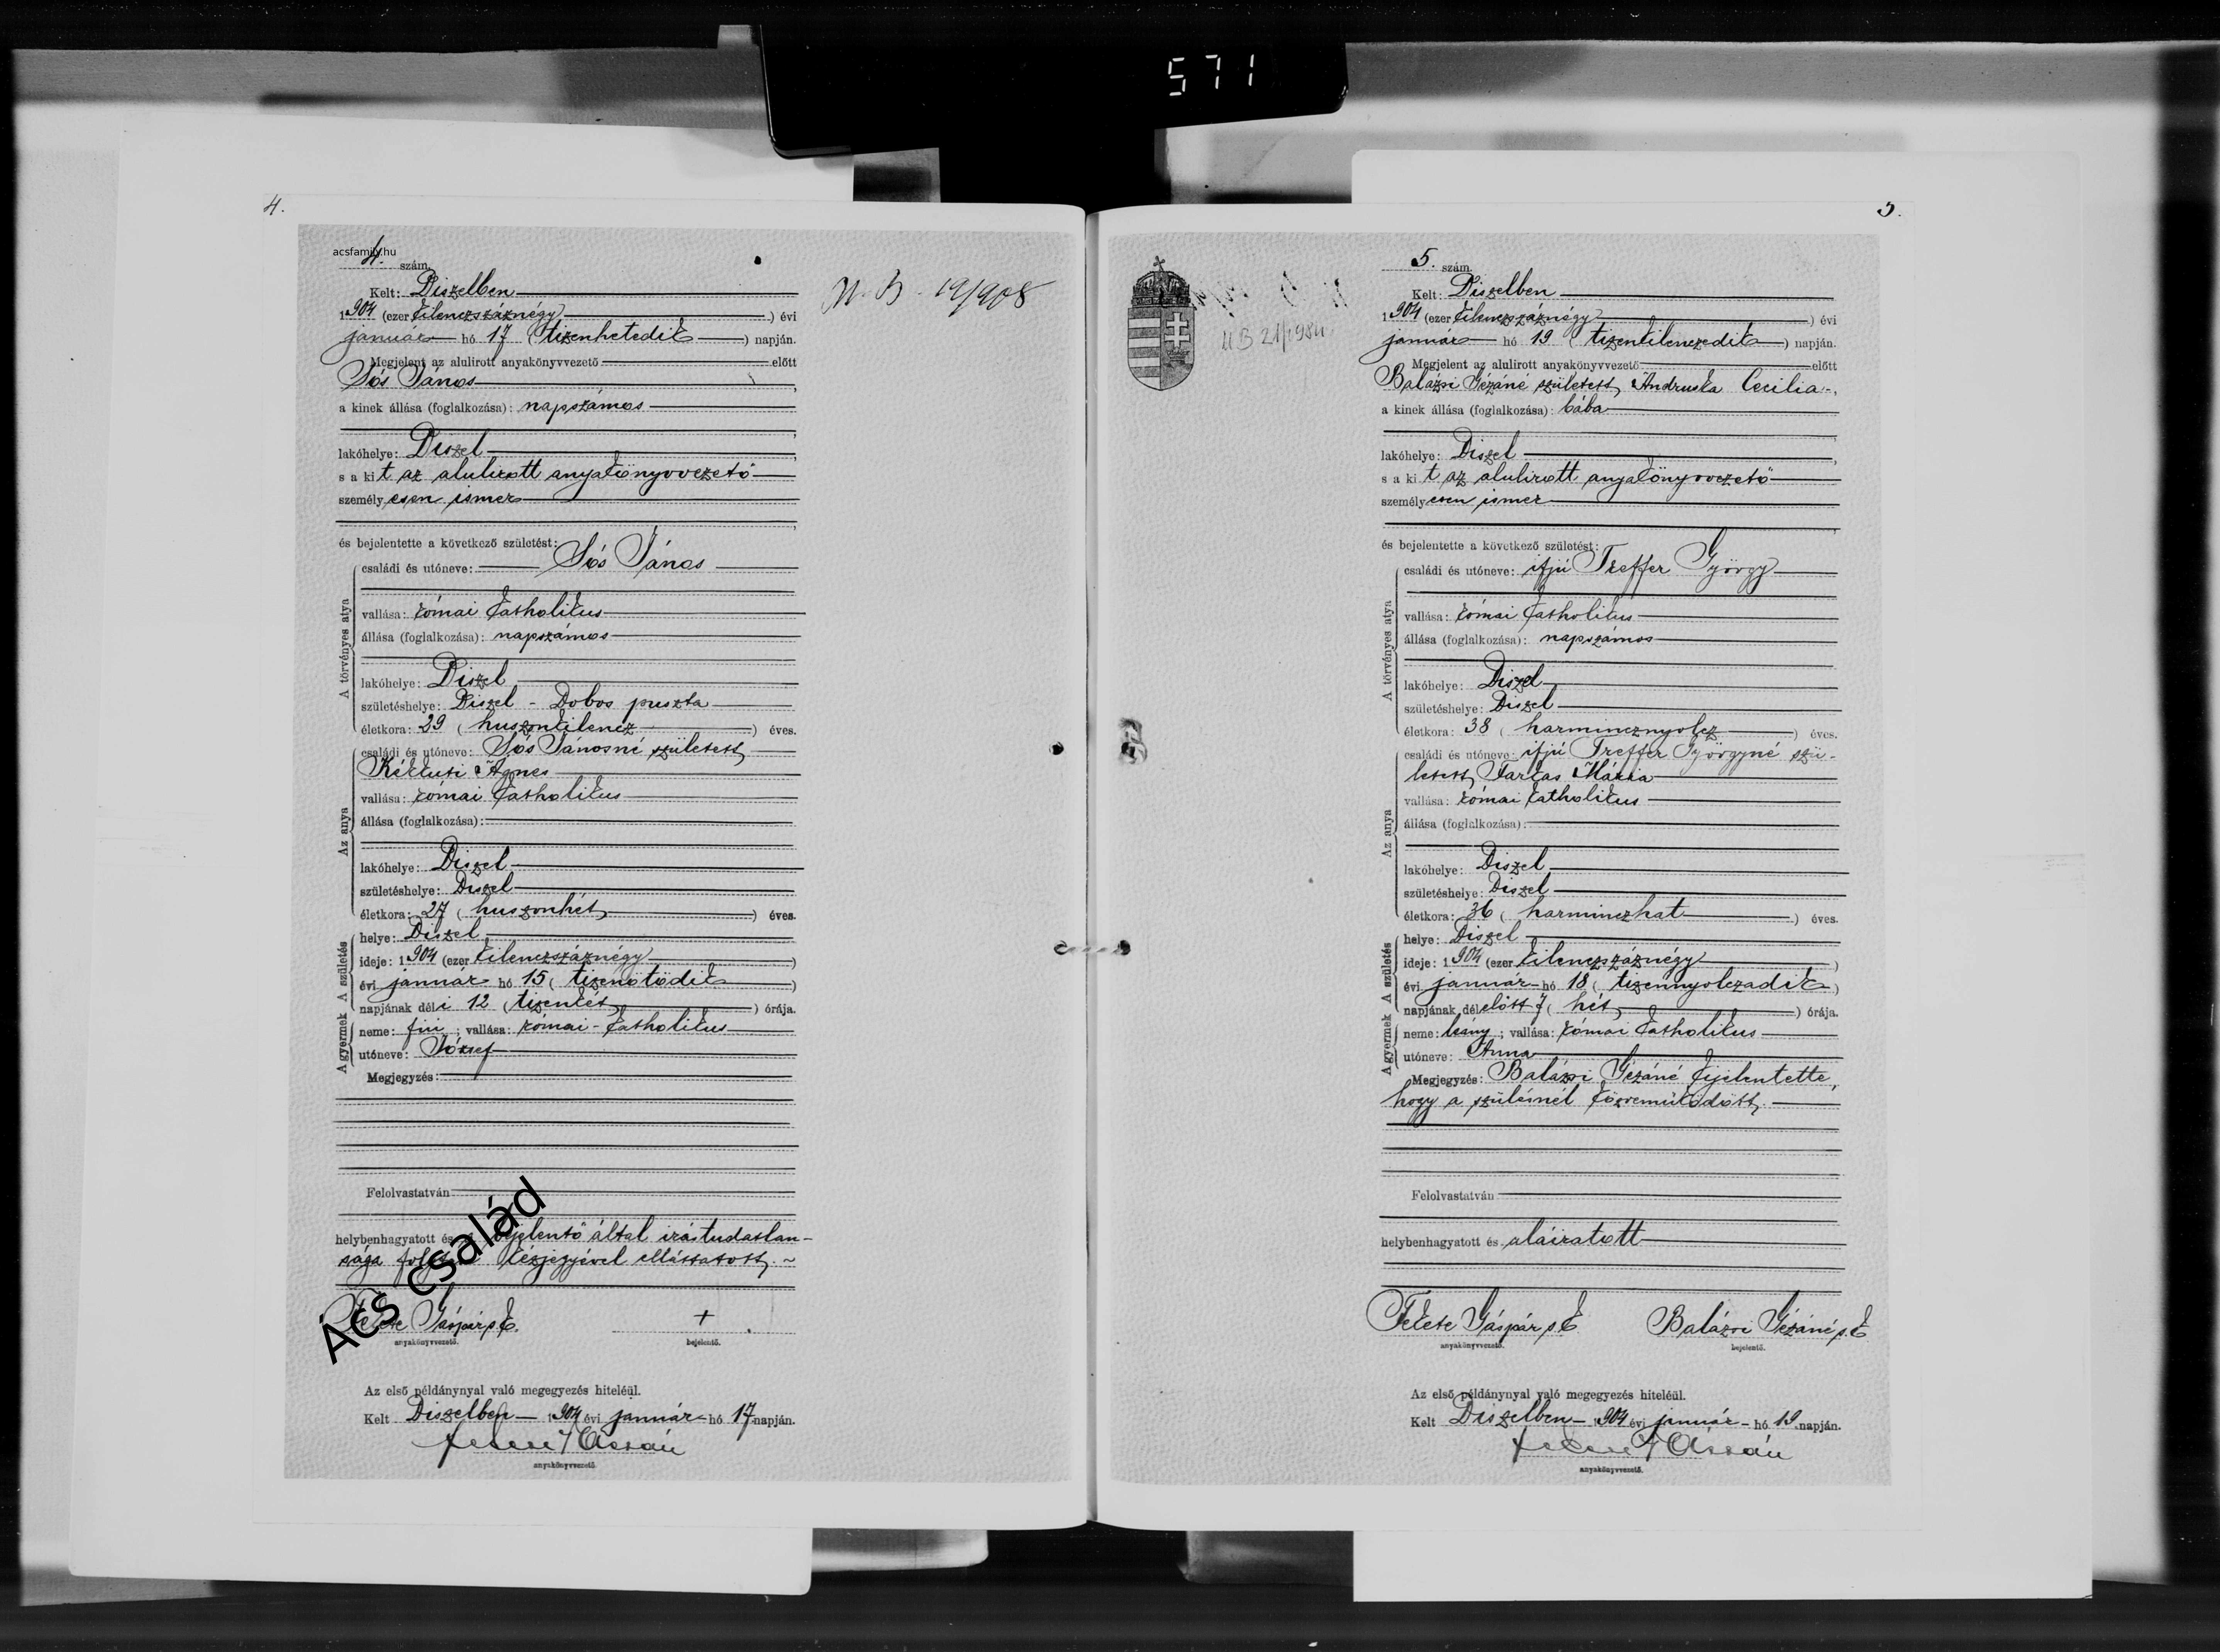 571
4.
acsfamily.hu
4. szám.
Kelt: Diszelben
1904 (ezer kilenczszáznégy) évi
január hó 17 (tizenhetedik) napján.
Megjelent az alulirott anyakönyvvezető előtt
Sós János,
a kinek állása (foglalkozása): napszámos
lakóhelye: Diszel,
s a kit az alulirott anyakönyvvezető
személyesen ismer
és bejelentette a következő születést:
A törvényes atya
családi és utóneve: Sós János
vallása: római katholikus
állása (foglalkozása): napszámos
lakóhelye: Diszel
születéshelye: Diszel - Dobos puszta
életkora: 29 (huszonkilencz) éves.
Az anya
családi és utóneve: Sós Jánosné született,
Kékkuti Ágnes
vallása: római katholikus
állása (foglalkozása):
lakóhelye: Diszel
születéshelye: Diszel
életkora: 27 (huszonhét) éves.
A születés
helye: Diszel
ideje: 1904 (ezer kilenczszáznégy)
évi január hó 15 (tizenötödik)
napjának déli 12 (tizenkét) órája.
A gyermek
neme: fiú; vallása: római-katholikus
utóneve: József
Megjegyzés:
Felolvastatván
helybenhagyatott és bejelentő által irástudatlan-
sága kézjegyével elláttatott. ~
Ács Család
Fekete Gáspár s.k. +
anyakönyvvezető. bejelentő.
Az első példánynyal való megegyezés hiteléül.
Kelt Diszelben 1904 évi január hó 17 napján.
anyakönyvvezető.
19/908
5.
UB 21/1984
5. szám.
Kelt: Diszelben
1904 (ezer kilenczszáznégy) évi
január hó 19 (tizenkilenczedik) napján.
Megjelent az alulirott anyakönyvvezető előtt
Balázsi Gézáné született, Andruska Cecilia,
a kinek állása (foglalkozása): bába
lakóhelye: Diszel,
s a kit az alulirott anyakönyvvezető
személyesen ismer
és bejelentette a következő születést:
A törvényes atya
családi és utóneve: ifjú Treffer György
vallása: római katholikus
állása (foglalkozása): napszámos
lakóhelye: Diszel
születéshelye: Diszel
életkora: 38 (harmincznyolcz) éves.
Az anya
családi és utóneve: ifjú Treffer Györgyné szü-
letett, Farkas Mária
vallása: római katholikus
állása (foglalkozása):
lakóhelye: Diszel
születéshelye: Diszel
életkora: 36 (harminczhat) éves.
A születés
helye: Diszel
ideje: 1904 (ezer kilenczszáznégy)
évi január hó 18 (tizennyolczadik)
napjának délelőtt 7 (hét) órája.
A gyermek
neme: leány; vallása: római katholikus
utóneve: Anna
Megjegyzés: Balázsi Gézáné kijelentette,
hogy a szülésnél közreműködött.
Felolvastatván
helybenhagyatott és aláiratott
Fekete Gáspár s.k. Balázsi Gézáné s.k.
anyakönyvvezető. bejelentő.
Az első példánynyal való megegyezés hiteléül.
Kelt Diszelben 1904 évi január hó 19 napján.
anyakönyvvezető.